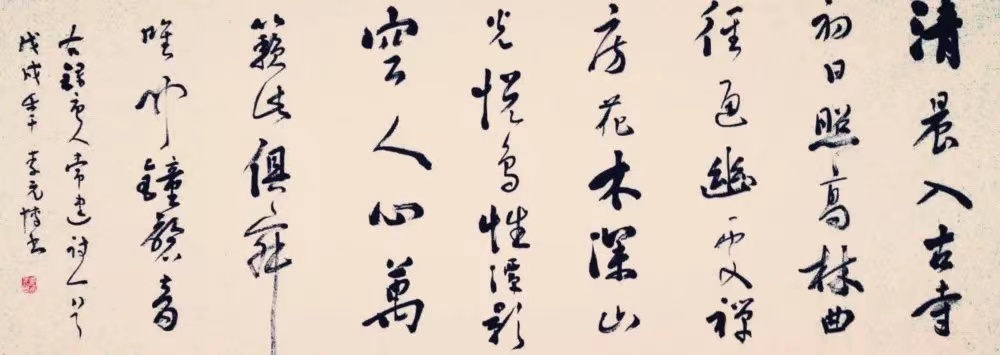 清晨入古寺
初日照高林曲
徑通幽處禅
房花木深山
光悦鳥性潭影
空人心萬
籟此俱寂
唯聞鐘磬音
右録唐人常建詩一首
戊戌年 李元博书